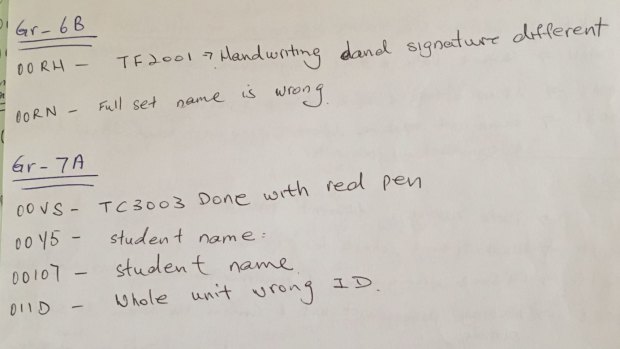 Gr- 6B
00RH - TF2001 → Handwriting dand signature different
00RN - Full set name is wrong.
Gr- 7A
00VS - TC3003 Done with red pen
00Y5 - student name:
00107 - student name.
011D - Whole unit wrong ID.